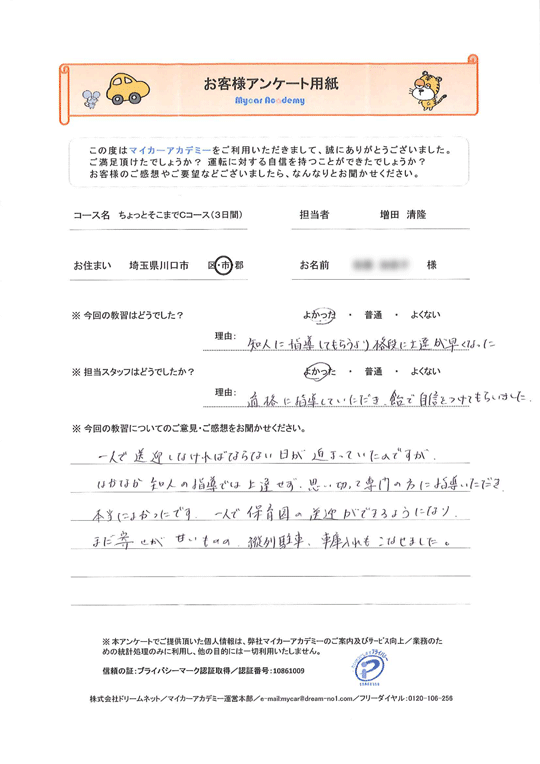 お客様アンケート用紙
Mycar Academy
この度はマイカーアカデミーをご利用いただきまして、誠にありがとうございました。
ご満足頂けたでしょうか? 運転に対する自信を持つことができたでしょうか?
お客様のご感想やご要望などございましたら、なんなりとお聞かせください。
コース名 ちょっとそこまでCコース(3日間) 担当者 増田 清隆
お住まい 埼玉県川口市 区・市・郡 お名前 様
※ 今回の教習はどうでした? よかった ・ 普通 ・ よくない
理由: 知人に指導してもらうより格段に上達が早くなった
※ 担当スタッフはどうでしたか? よかった ・ 普通 ・ よくない
理由: 適格に指導していただき、自信をつけてもらいました。
※ 今回の教習についてのご意見・ご感想をお聞かせください。
一人で送迎しなければならない日が迫まっていたのですが、
なかなか知人の指導では上達せず、思い切って専門の方に指導いただき
本当によかったです。一人で保育園の送迎ができるようになり、
まだ寄せが甘いものの、縦列駐車、車庫入れもこなせました。
※ 本アンケートでご提供頂いた個人情報は、弊社マイカーアカデミーのご案内及びサービス向上/業務のた
めの統計処理のみに利用し、他の目的には一切利用いたしません。
信頼の証:プライバシーマーク認証取得/認証番号:10861009
株式会社ドリームネット/マイカーアカデミー運営本部/e-mail:mycar@dream-no1.com/フリーダイヤル:0120-106-256